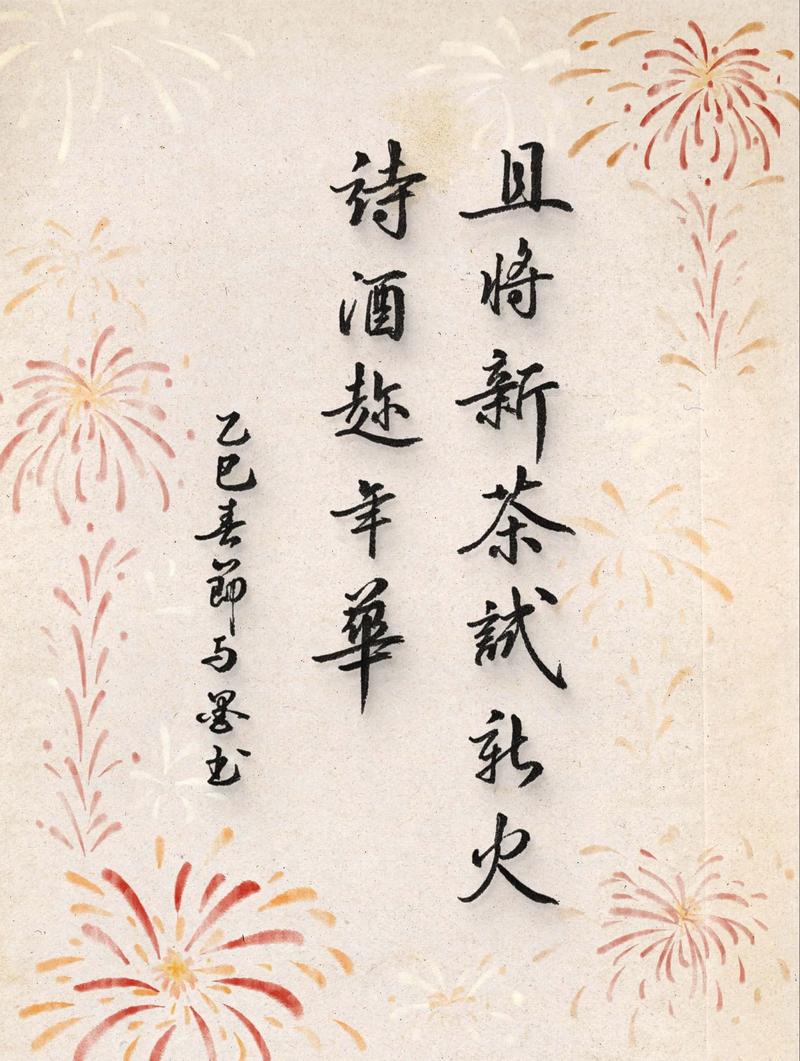 且將新茶試新火
詩酒趂年華
乙巳春節与墨書